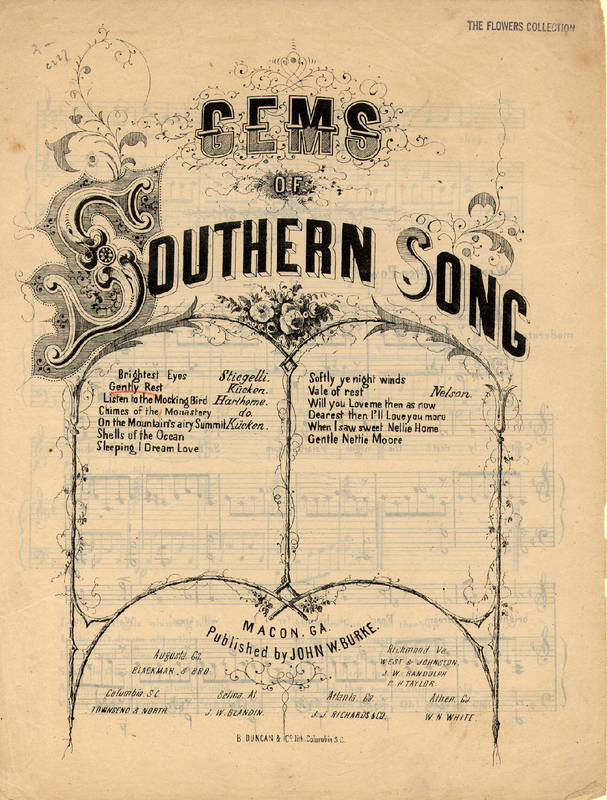 THE FLOWERS COLLECTION
GEMS
OF
SOUTHERN SONG
Brightest Eyes Stiegelli.
Gently Rest Kücken.
Listen to the Mocking Bird Harthorne.
Chimes of the Monastery do.
On the Mountain's airy Summit Kücken.
Shells of the Ocean
Sleeping, I Dream Love
Softly ye night winds
Vale of rest Nelson.
Will you Love me then as now
Dearest then I'll Love you more
When I saw sweet Nellie Home
Gentle Nettie Moore
MACON, GA.
Published by JOHN W. BURKE.
Augusta, Ga.
BLACKMAR, & BRO
Richmond Va.
WEST & JOHNSTON.
J. W. RANDOLPH
C. H TAYLOR.
Columbia, S.C
TOWNSEND & NORTH.
Selma, Al
J. W. BLANDIN.
Atlanta, Ga.
J. J. RICHARDS & CO.
Athen, Ga
W. N WHITE
B. DUNCAN & Co lith. Columbia S.C.